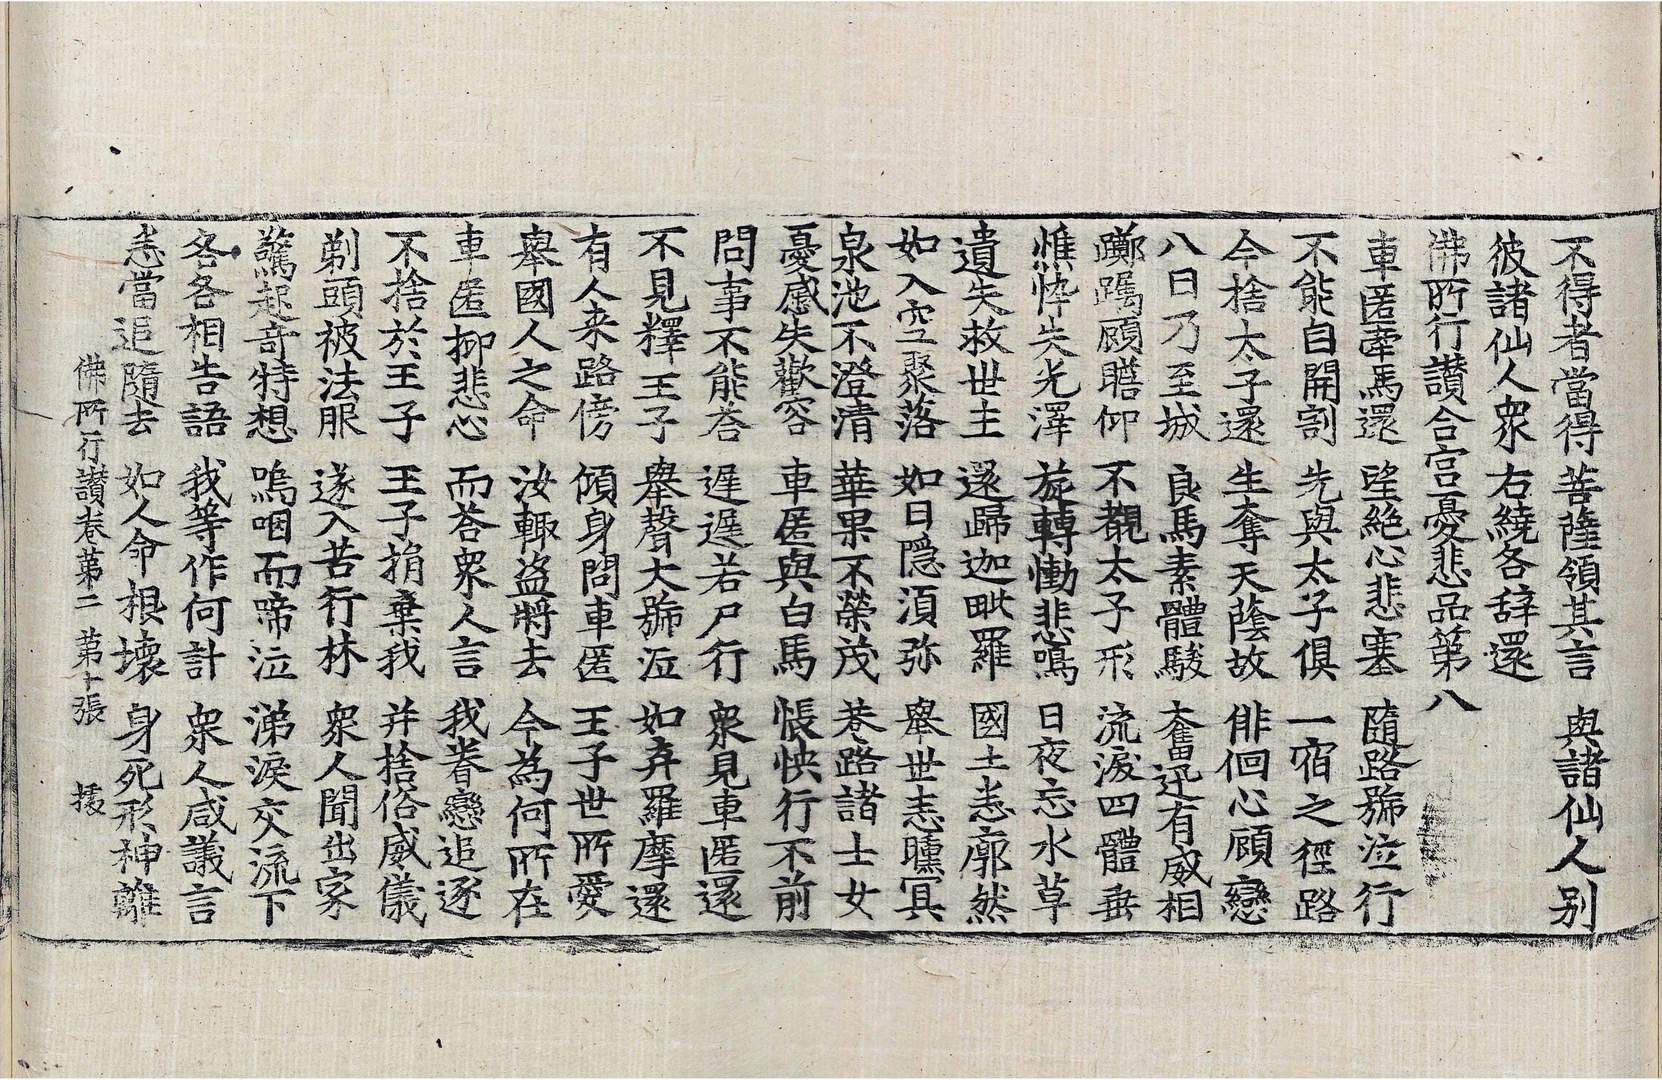 不得者當得 菩薩領其言 與諸仙人別
彼諸仙人眾 右繞各辞還
佛所行讚合宮憂悲品第八
車匿牽馬還 望絶心悲塞 隨路號泣行
不能自開割 先與太子俱 一宿之徑路
今捨太子還 生奪天蔭故 俳佪心顧戀
八日乃至城 良馬素體駿 奮迅有威相
躑躅顧瞻仰 不覩太子形 流淚四體垂
憔悴失光澤 旋轉慟悲鳴 日夜忘水草
遺失救世主 還歸迦毗羅 國土悉廓然
如入空聚落 如日隱湏弥 舉世悉曛冥
泉池不澄清 華果不榮茂 巷路諸士女
憂慼失歡容 車匿與白馬 悵怏行不前
問事不能荅 遲遲若尸行 眾見車匿還
不見釋王子 舉聲大號泣 如弃羅摩還
有人来路傍 傾身問車匿 王子世所愛
舉國人之命 汝輙盜將去 今為何所在
車匿抑悲心 而荅眾人言 我眷戀追逐
不捨於王子 王子捐棄我 并捨俗威儀
剃頭被法服 遂入苦行林 眾人聞出家
驚起竒特想 嗚咽而啼泣 涕淚交流下
各各相告語 我等作何計 眾人咸議言
悉當追隨去 如人命根壞 身死形神離
佛所行讚卷苐二 苐十張 援